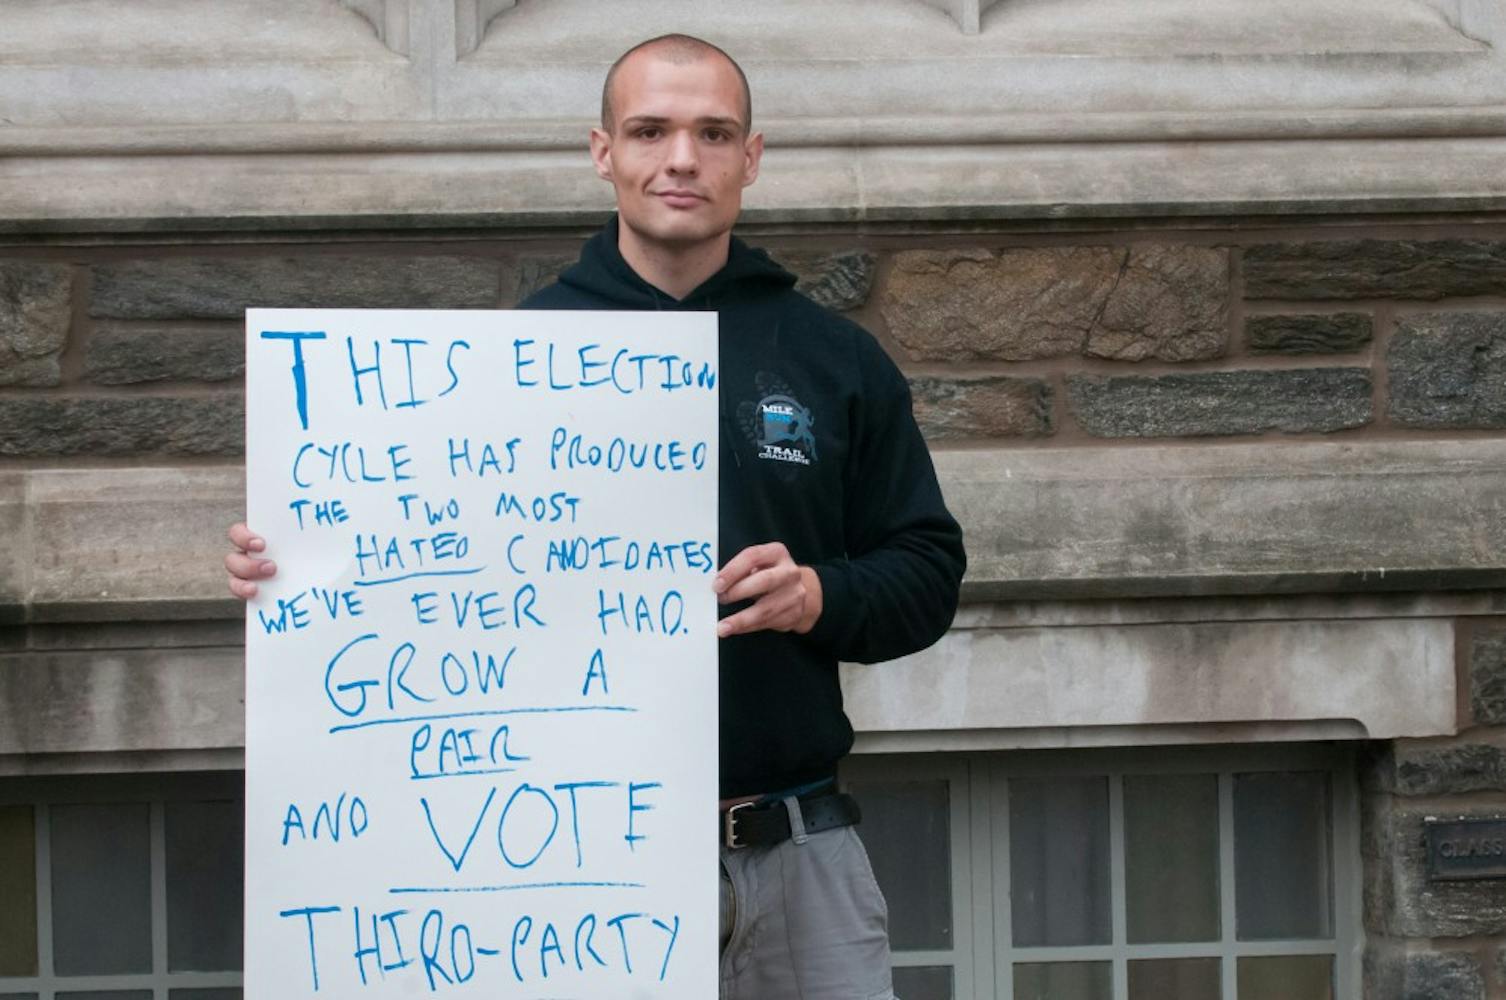 THIS ELECTION
CYCLE HAS PRODUCED
THE TWO MOST
HATED CANDIDATES
WE'VE EVER HAD.
GROW A
PAIR
AND VOTE
THIRD-PARTY
MILE
RUN
TRAIL
CHALLENGE
CLASS